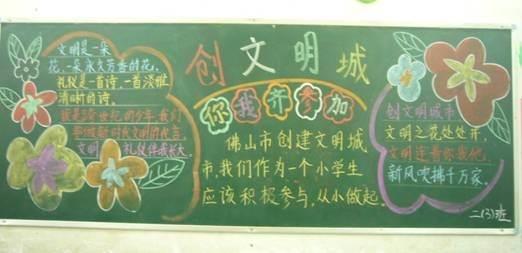 文明是一朵
花，一朵永久芳香的花。
礼仪是一首诗，一首淡雅
清晰的诗。
文明 礼仪伴我长大。
创文明城
你我齐参加
佛山市创建文明城
市，我们作为一个小学生
应该积极参与，从小做起。
创文明城市
文明之花处处开，
文明连着你我他，
新风吹拂千万家。
二(3)班